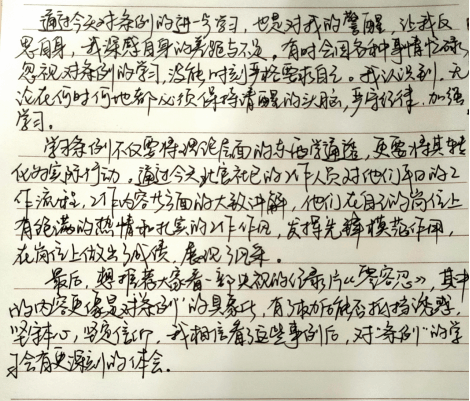 通过今天对条例的进一步学习，也是对我的警醒，让我反
思自身，我深感自身的差距与不足，有时会因各种事情忙碌，
忽视对条例的学习，没能时刻严格要求自己。我认识到，无
论在何时何地都必须保持清醒的头脑，严守纪律，加强
学习。
学习条例不仅要将理论层面的东西学通透，更要将其转
化为实际行动。通过今天社区的工作人员对他们平日的工
作流程，工作内容等方面的大致讲解，他们在自己的岗位上
有饱满的热情和扎实的工作作风，发挥先锋模范作用，
在岗位上做出了成绩，展现了风采。
最后，想推荐大家看一部央视的纪录片《零容忍》，其中
的内容更像是对“条例”的具象化，有了权力后能否抵挡诱惑，
坚守本心，坚定信仰，我相信看了这些事例后，对“条例”的学
习会有更深刻的体会。